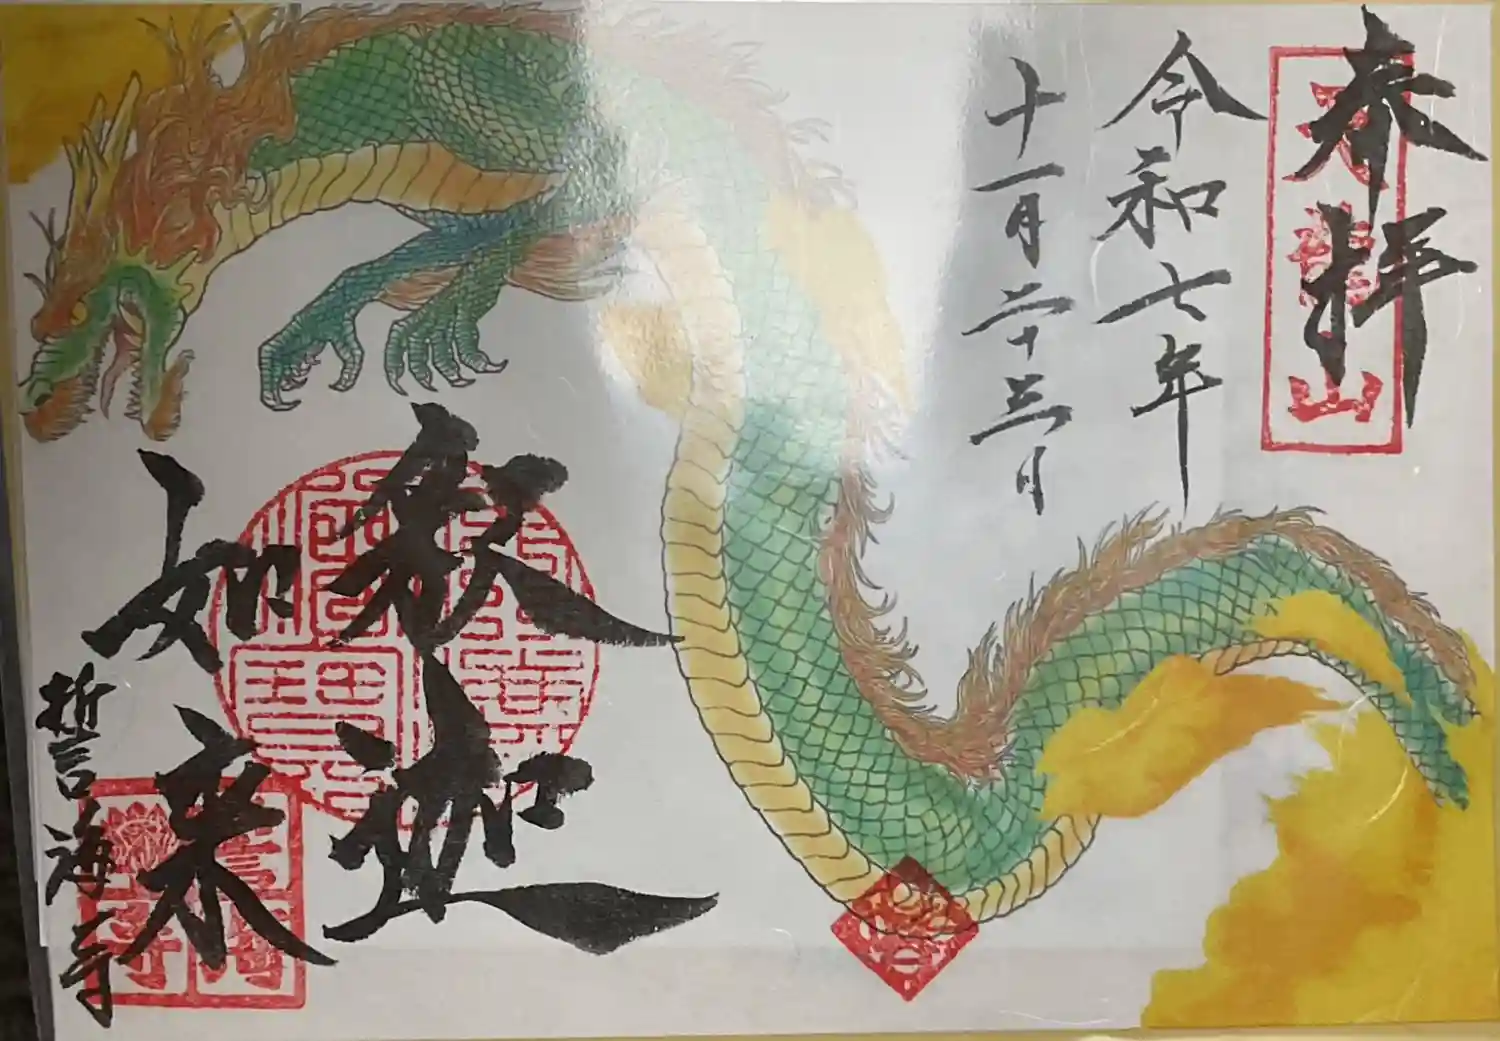 奉拝
龍山
令和七年
十一月二十三日
釈迦
如来
誓海寺